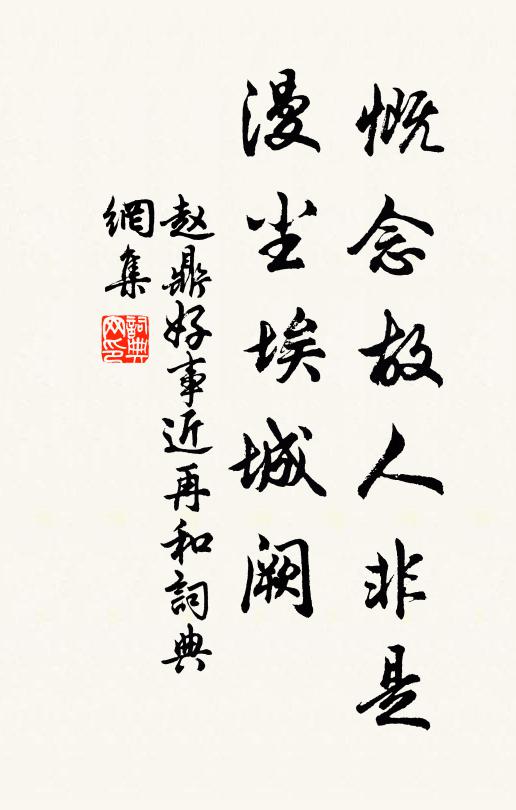 慨念故人非是
漫尘埃城阙
赵鼎好事近再和詞典
網集
詞典
网印